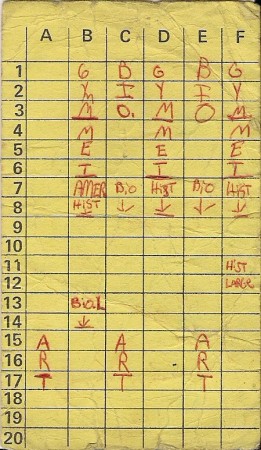 A B C D E F
1 G B G B G
2 Y I Y I Y
3 M O. M O M
4 M M M
5 E E E
6 I I I
7 AMER Bio Hist Bio Hist
8 HIST
9
10
11 Hist
12 LARGE
13 BioL
14
15 A A A
16 R R R
17 T T T
18
19
20